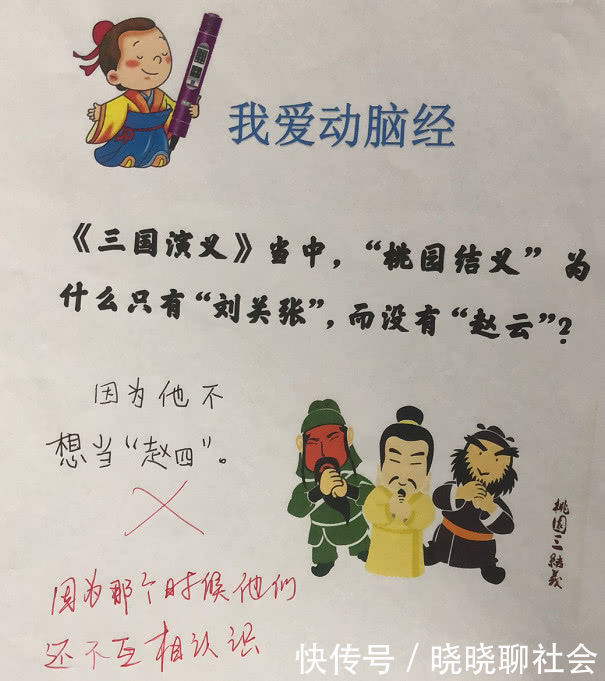 我爱动脑经
《三国演义》当中，“桃园结义”为
什么只有“刘关张”，而没有“赵云”？
因为他不
想当“赵四”。
桃园三结义
因为那个时候他们
还不互相认识
快传号/晓晓聊社会